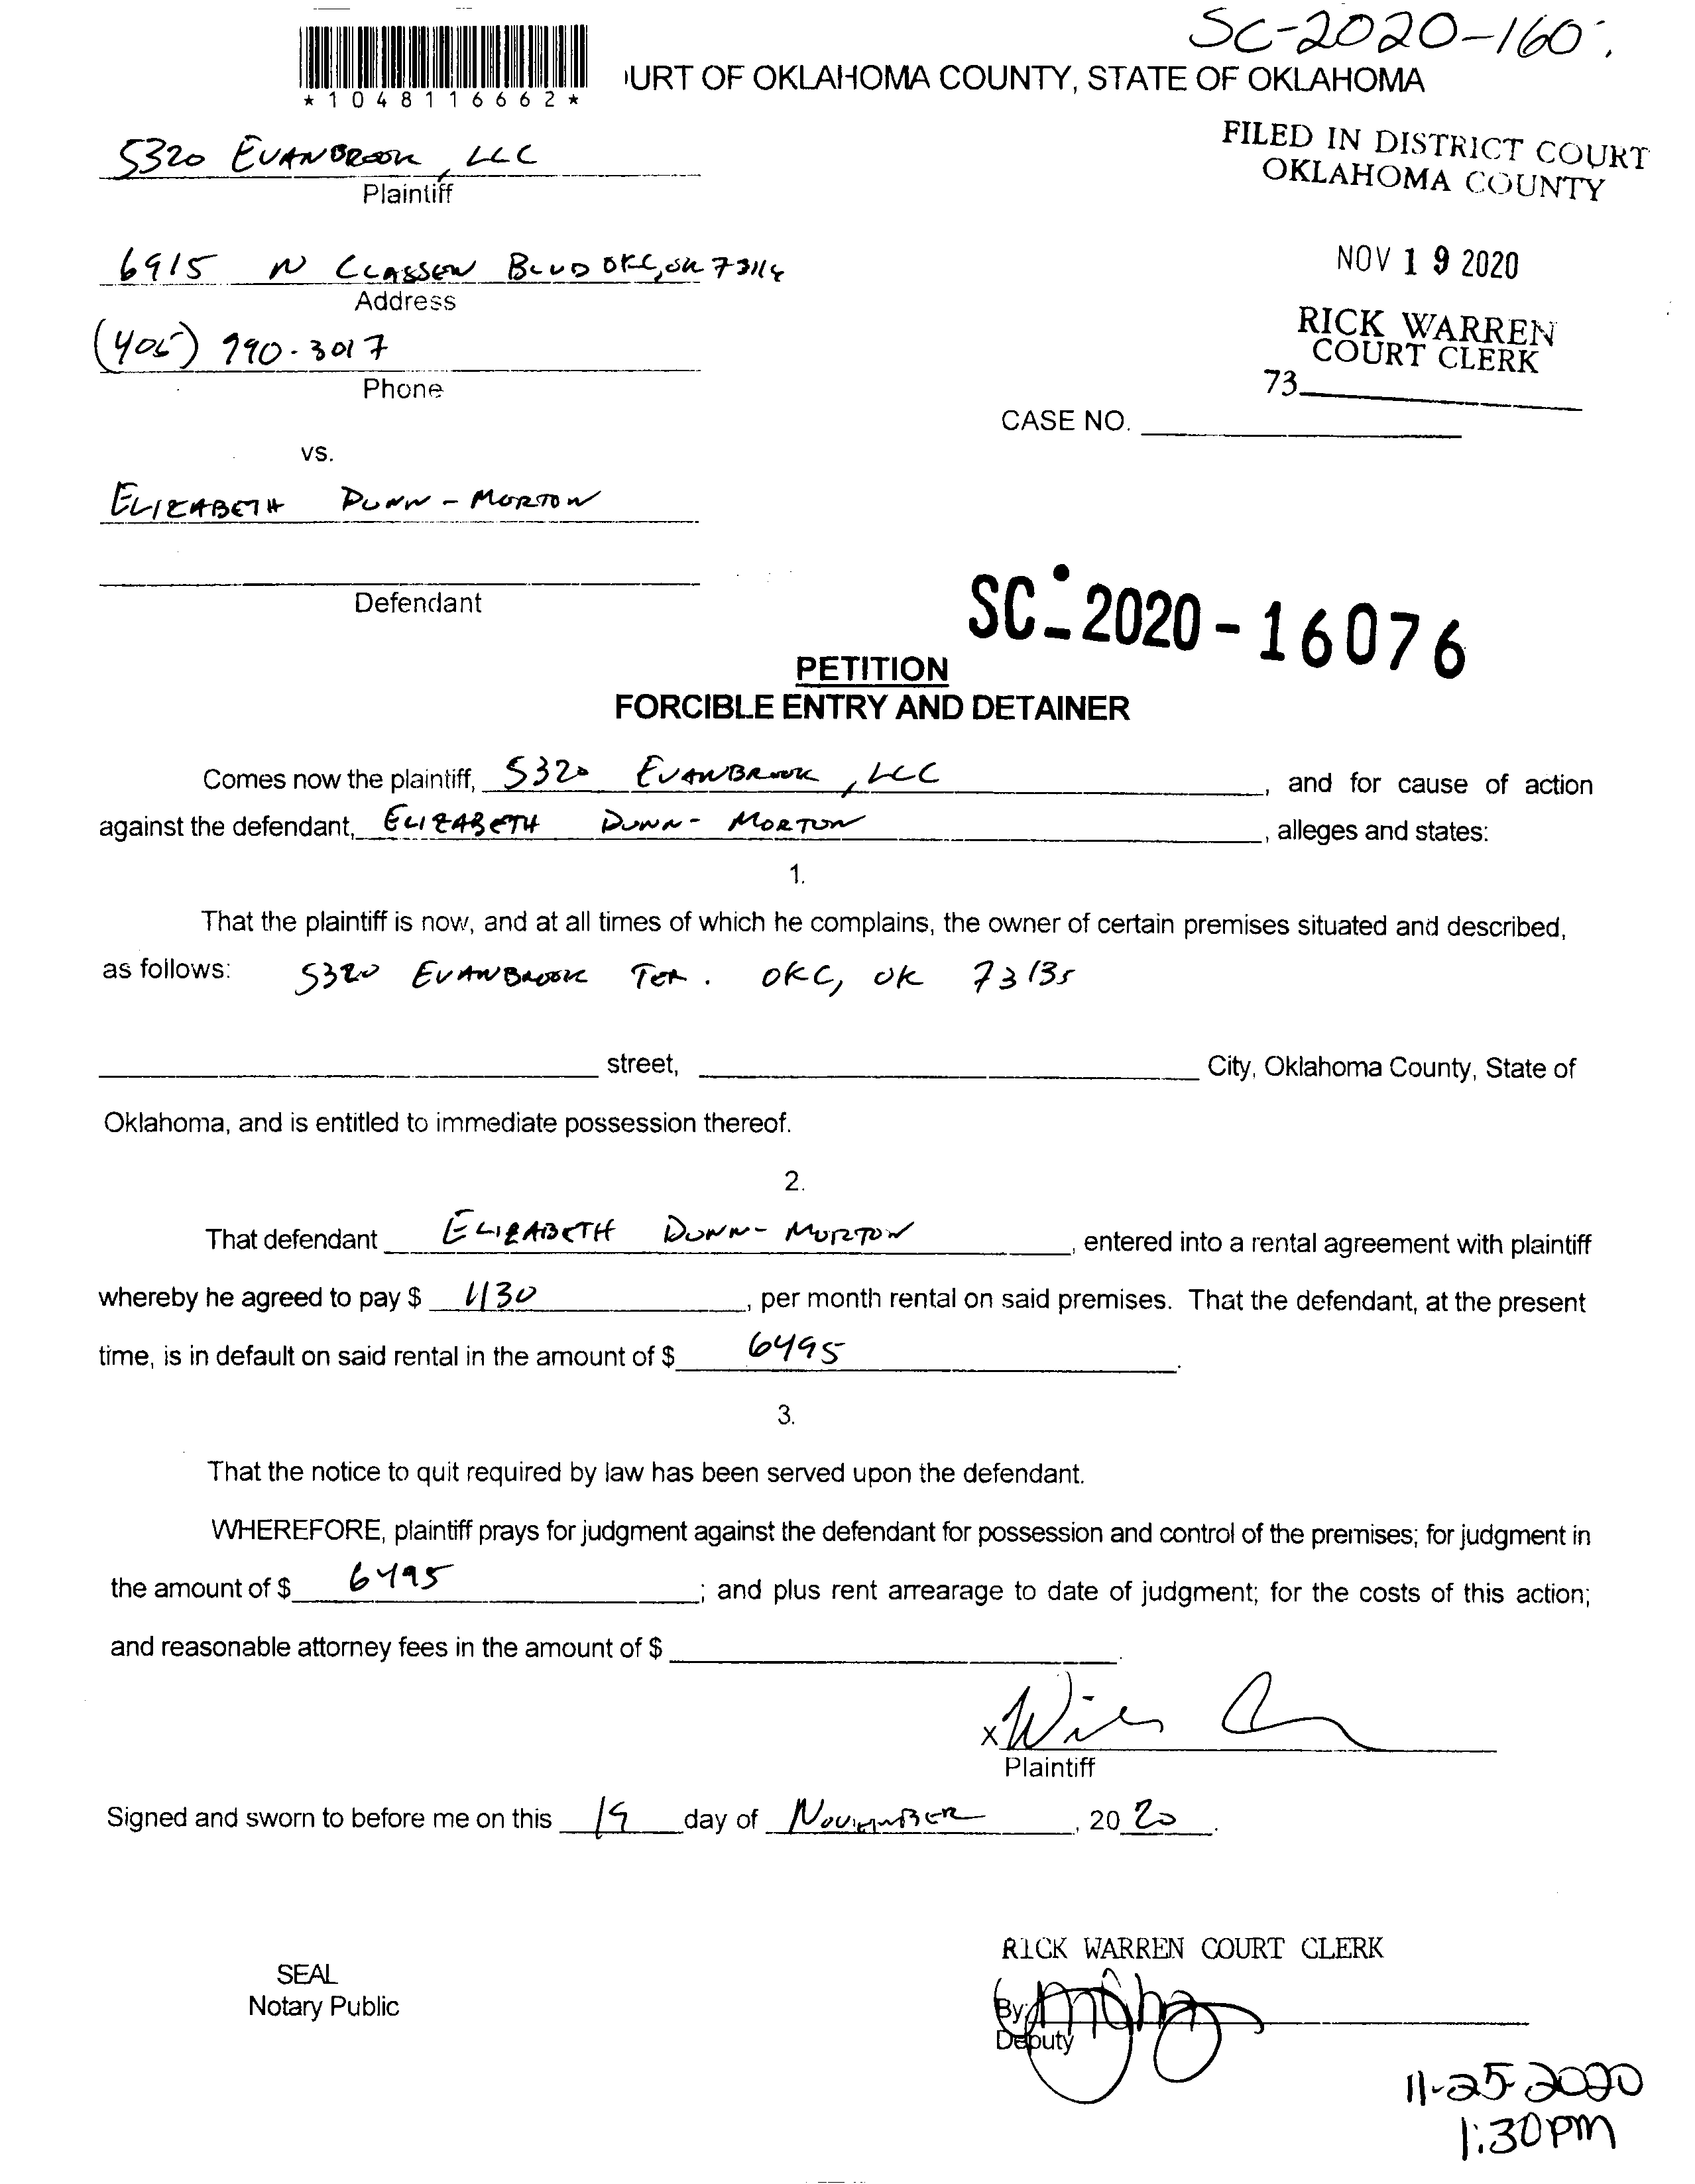 SC-2020-160
*1048116662*
URT OF OKLAHOMA COUNTY, STATE OF OKLAHOMA
FILED IN DISTRICT COURT
OKLAHOMA COUNTY
5320 EVANBROOK, LLC
Plaintiff
6915 N CLASSEN BLVD OKC, OK 73116
Address
NOV 19 2020
(405) 990-3017
Phone
RICK WARREN
COURT CLERK
73
CASE NO.
vs.
ELIZABETH DUNN-MORTON
Defendant
SC-2020-16076
PETITION
FORCIBLE ENTRY AND DETAINER
Comes now the plaintiff, 5320 EVANBROOK, LLC, and for cause of action
against the defendant, ELIZABETH DUNN-MORTON, alleges and states:
1.
That the plaintiff is now, and at all times of which he complains, the owner of certain premises situated and described,
as follows: 5320 EVANBROOK TER. OKC, OK 73135
street, City, Oklahoma County, State of
Oklahoma, and is entitled to immediate possession thereof.
2.
That defendant ELIZABETH DUNN-MORTON, entered into a rental agreement with plaintiff
whereby he agreed to pay $ 1130, per month rental on said premises. That the defendant, at the present
time, is in default on said rental in the amount of $ 6495.
3.
That the notice to quit required by law has been served upon the defendant.
WHEREFORE, plaintiff prays for judgment against the defendant for possession and control of the premises; for judgment in
the amount of $ 6495; and plus rent arrearage to date of judgment; for the costs of this action;
and reasonable attorney fees in the amount of $ .
x
Plaintiff
Signed and sworn to before me on this 19 day of NOVEMBER, 20 20.
RICK WARREN COURT CLERK
SEAL
Notary Public
By:
Deputy
11-25-2020
1:30pm